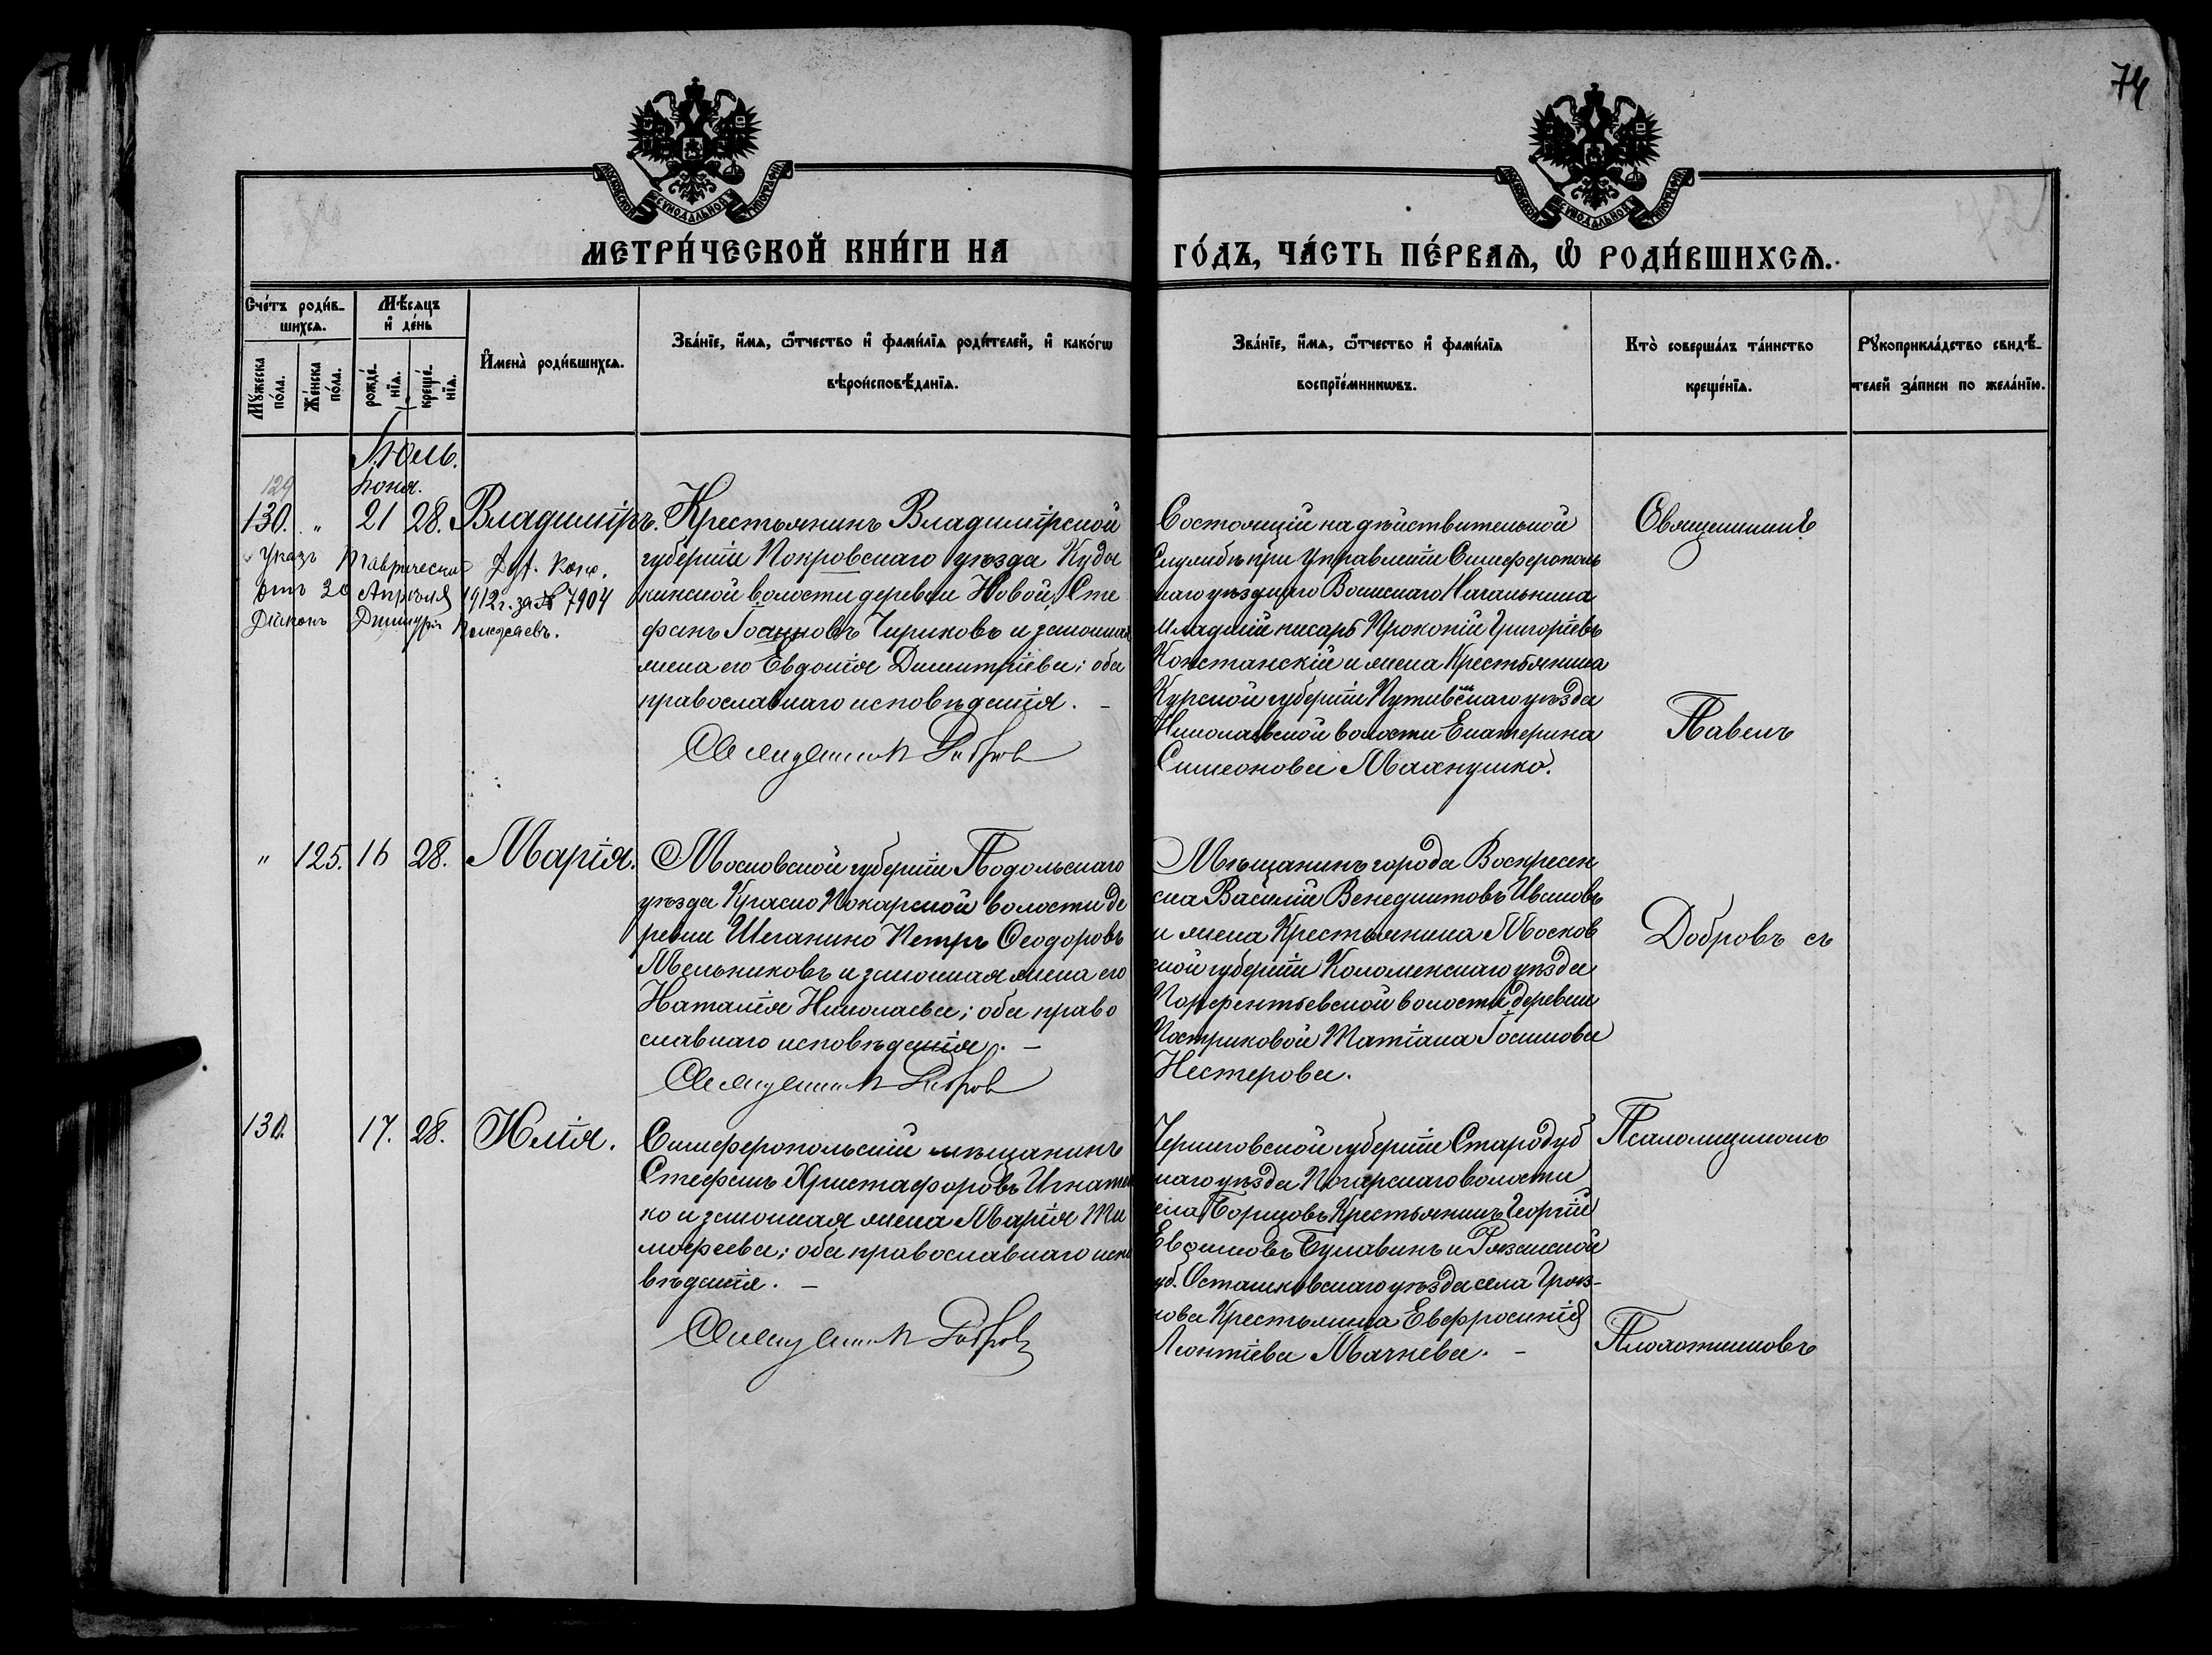 74
МОСКОВСКОЙ СѴНОДАЛЬНОЙ ТИПОГРАФІИ
МОСКОВСКОЙ СѴНОДАЛЬНОЙ ТИПОГРАФІИ
МЕТРИ́ЧЕСКОЙ КНИ́ГИ НА
ГО́ДЪ, ЧА́СТЬ ПЕ́РВАѦ, Ѡ҆ РОДИ́ВШИХСѦ.
Сче́тъ роди́в-
шихсѧ.
Мꙋ́жеска по́ла.
Же́нска по́ла.
Мѣ́сѧцъ и҆ де́нь
рожде́нїѧ.
креще́нїѧ.
И҆мена̀ роди́вшихсѧ.
Зва́нїе, и҆́мѧ, ѻ҆́тчество и҆ фами́лїѧ роди́телей, и҆ како́гѡ
вѣроисповѣ́данїѧ.
Зва́нїе, и҆́мѧ, ѻ҆́тчество и҆ фами́лїѧ
воспрїе́мникѡвъ.
Кто̀ соверша́лъ та́инство
креще́нїѧ.
Рꙋкоприкла́дство свидѣ́-
телей за́писи по жела́нїю.
Іюль.
129
Іюня.
130. " 21 28. Владиміръ.
Указъ Таврической Дух. Конс.
отъ 20 Апрѣля 1912 г. за № 7904
Діаконъ Димитрій
Крестьянинъ Владимірской
губерніи Покровскаго уѣзда Куды
кинской волости деревни Новой, Сте
фанъ Іоанновъ Чириковъ и законная
жена его Евдокія Димитріева; оба
православнаго исповѣданія. –
Священникъ П Добров
Состоящій на дѣйствительной
службѣ при Управленіи Симферополь
скаго уѣзднаго Воинскаго Начальника
младшій писарь Прокопій Григоріевъ
Констанскій и жена Крестьянина
Курской губерніи Путивльскаго уѣзда
Николаевской волости Екатерина
Симеонова
Священникъ
Павелъ
" 125. 16 28. Марія.
Московской губерніи Подольскаго
уѣзда Красно Пахарской волости де
ревни Шаганино Петръ Ѳеодоровъ
Мельниковъ и законная жена его
Наталія Николаева; оба право
славнаго исповѣданія. –
Священник П Добров
Мѣщанинъ города Воскресен
ска Василій Венедиктовъ Ивановъ
и жена Крестьянина Москов
ской губерніи Коломенскаго уѣзда
Парфентьевской волости деревни
Постриковой Татіана Іоаннова
Нестерова.
Добровъ съ
130. 17. 28. Юлія.
Симферопольскій мѣщанинъ
Стефанъ Христофоровъ Игнатен
ко и законная жена Марія Ти
мофеева; оба православнаго испо
вѣданія. –
Священник П Добров
Черниговской губерніи Стародуб
скаго уѣзда Погарскаго волости
села Борщовъ Крестьянинъ Георгій
Булавинъ и Рязанской
губ. Осташковскаго уѣзда села
Крестьянка Евфросинія
Леонтіева Мачнева. –
Псаломщикомъ
Плохотниковъ